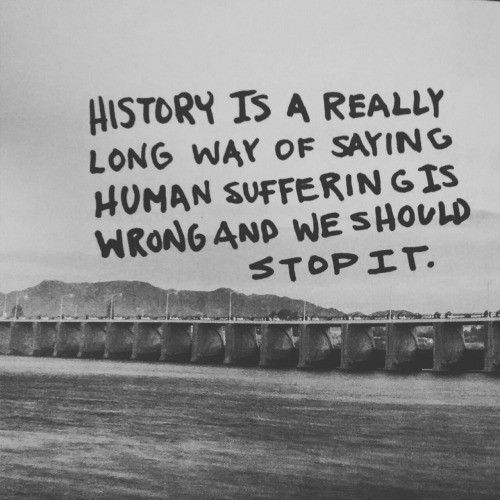 HISTORY IS A REALLY
LONG WAY OF SAYING
HUMAN SUFFERING IS
WRONG AND WE SHOULD
STOP IT.